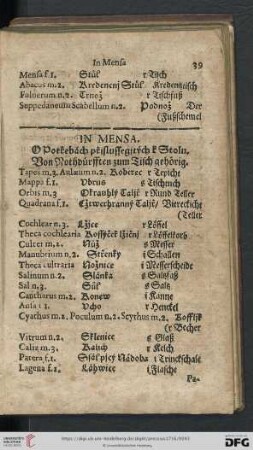 In Mensa 39
Mensa f.1. Stůl r Tisch
Abacus m.2. Kredencnj Stůl Kredentzisch
Fulcrum n.2. Trnož r Tischfuß
Suppedaneum Scabellum n.2. Podnož Der
(Fußschemel
IN MENSA.
O Potřebách přisluſſegicých k Stolu.
Von Nothdürfften zum Tisch gehörig.
Tapes m.3. Aulaeum n.2. Koberec r Tepicht
Mappa f.1. Ubrus s Tischtuch
Orbis m.3 Okrauhly Taljř r Rund Teller
Quadrana f.1. Čtwerhranný Taljř Viereckicht
(Teller
Cochlear n.3. Lžjce r Löffel
Theca cochlearia Koſſyček lžičnj r Löffelkorb
Culter m.2. Nůž s Messer
Manubrium n.2. Střenky i Schallen
Theca cultraria Nožnice i Messerscheide
Salinum n.2. Slánka s Saltzfaß
Sal n.3. Sůl s Saltz
Cantharus m.2. Konew i Kanne
Ansa f.1. Vcho r Henckel
Cyathus m.2. Poculum n.2. Scythus m.2. Kofſljk
(r Becher
Vitrum n.2. Sklenice s Glaß
Calix m.3. Kalich r Kelch
Patera f.1. Nádoba i Trinckschale
Lagena f.1. Láhwice i Flasche
Pa-
DFG